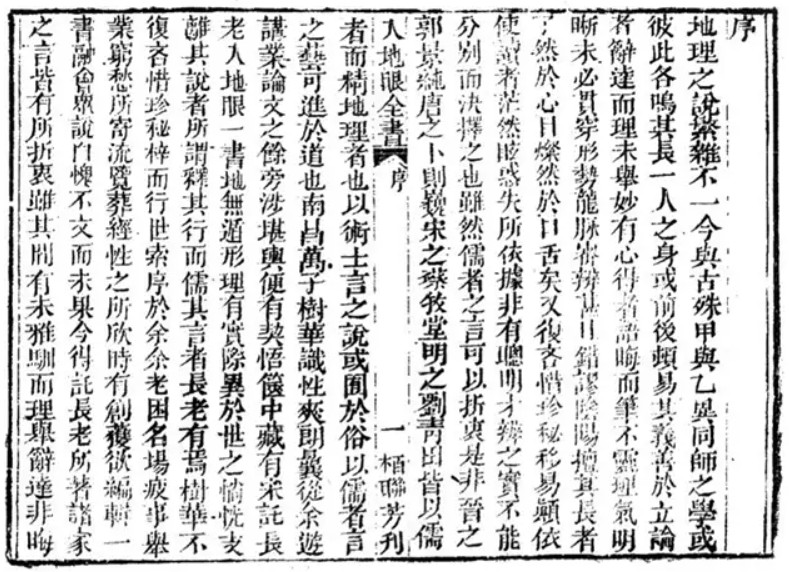 序
地理之說繁雜不一今與古殊甲與乙異同師之學或
彼此各鳴其長一人之身或前後頓易其義善於立論
者辭達而理未舉妙有心得者語晦而筆不靈理氣明
晰未必貫穿形勢龍脉審辨甚且錯謬陰陽擅其長者
了然於心目燦然於口舌矣又復吝惜珍秘移易顛依
使讀者茫然眩惑失所依據非有聰明才辨之實不能
分別而決擇之也雖然儒者之言可以折衷是非晉之
郭景純唐之卜則巍宋之蔡牧堂明之劉青田皆以儒
人地眼全書 序 一 栢聯芳刊
者而精地理者也以術士言之說或囿於俗以儒者言
之藝可進於道也南昌萬子樹華識性爽朗曩從余遊
講業論文之餘旁涉堪輿便有契悟篋中藏有宋託長
老人地眼一書地無遁形理有實際異於世之惝恍支
離其說者所謂釋其行而儒其言者長老有焉樹華不
復吝惜珍秘梓而行世索序於余余老困名場疲事舉
業窮愁所寄流覽葬經性之所欣時有創獲欲編輯一
書融會眾說自愧不文而未果今得託長老所著諸家
之言皆有所折衷雖其間有未雅馴而理舉辭達非晦